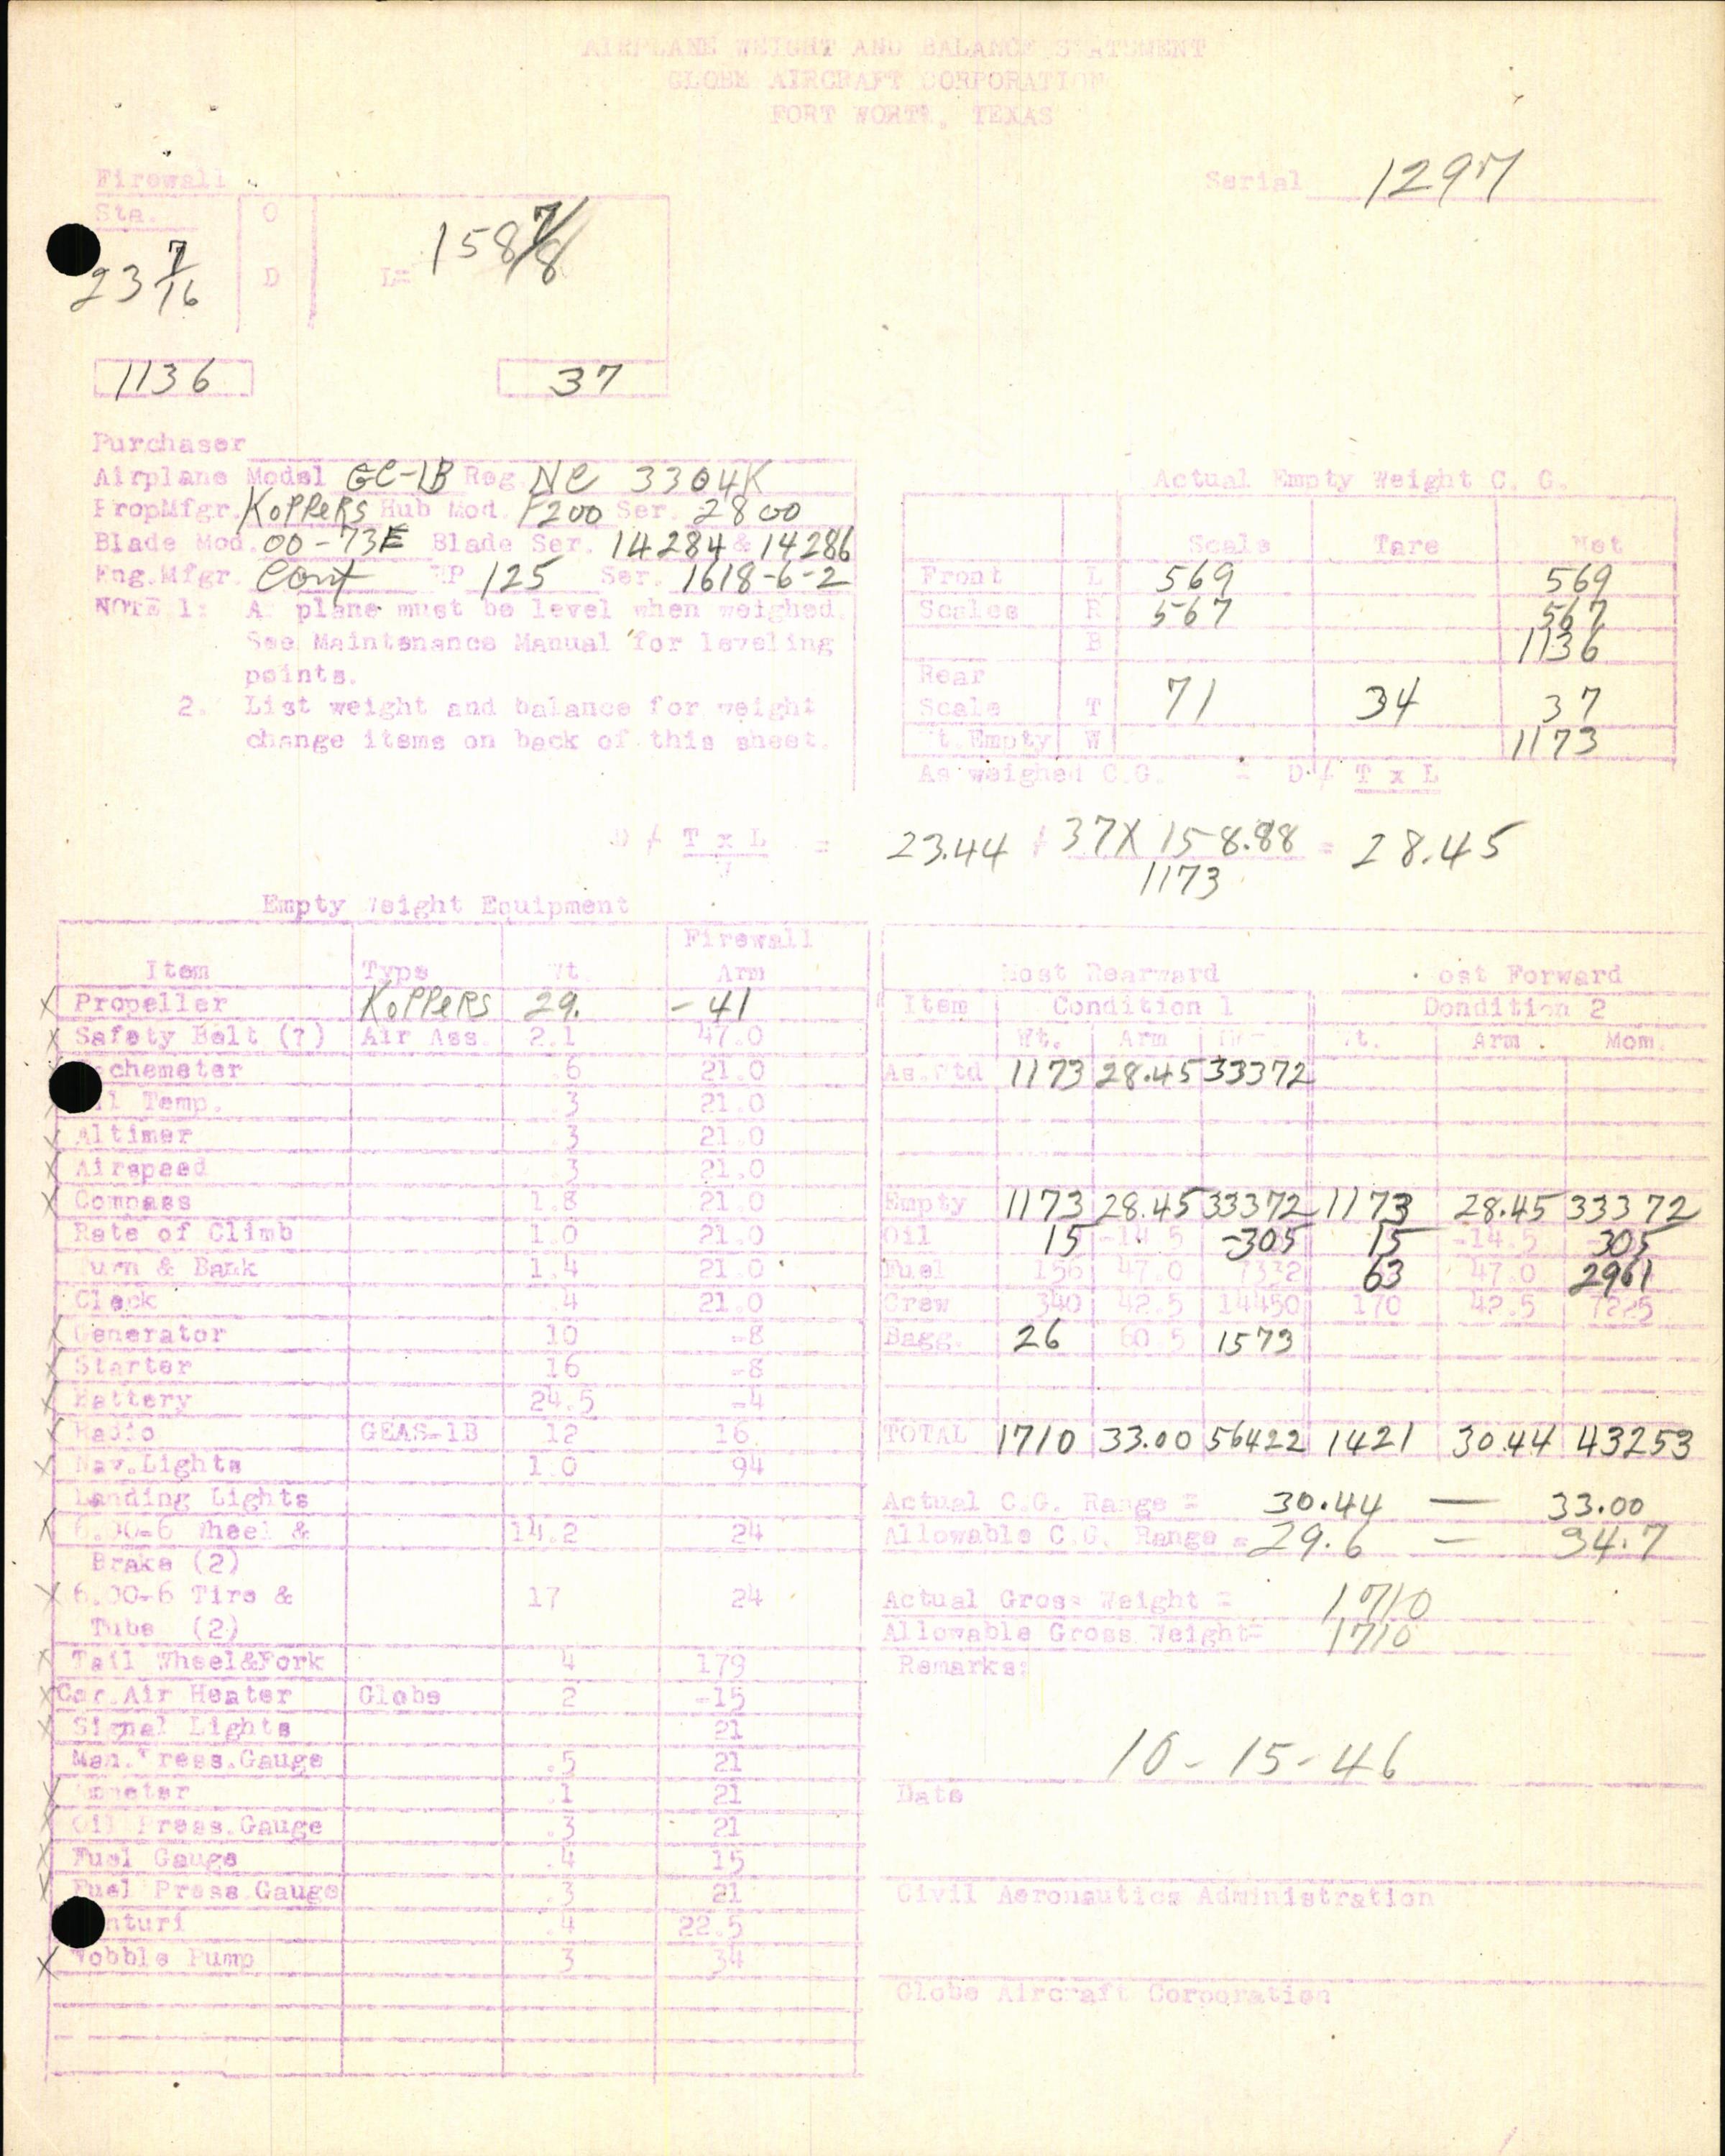 AIRPLANE WEIGHT AND BALANCE STATEMENT
GLOBE AIRCRAFT CORPORATION
FORT WORTH, TEXAS
Firewall
Serial 1297
Sta. O
23 7/16 D L= 158 7/8
1136 37
Purchaser
Airplane Model GC-1B Reg NC 3304K
PropMfgr. KOPPERS Hub Mod. F200 Ser. 2800
Blade Mod. 00-73E Blade Ser. 14284 & 14286
Eng.Mfgr. Cont HP 125 Ser. 1618-6-2
NOTE 1: A plane must be level when weighed.
See Maintenance Manual for leveling
points.
2. List weight and balance for weight
change items on back of this sheet.
Actual Empty Weight C. G.
Scale Tare Net
Front L 569 569
Scales R 567 567
B 1136
Rear
Scale T 71 34 37
Wt.Empty W 1173
As weighed C.G. = D / T x L
D / T x L = 23.44 / 37 X 158.88 = 28.45
W 1173
Empty Weight Equipment
Item Type Wt. Firewall Arm
X Propeller KOPPERS 29. -41
X Safety Belt (?) Air Ass. 2.1 47.0
chometer .6 21.0
il Temp. .3 21.0
X Altimer .3 21.0
X Airspeed .3 21.0
X Compass 1.8 21.0
Rate of Climb 1.0 21.0
Turn & Bank 1.4 21.0
Clock .4 21.0
X Generator 10 -8
X Starter 16 -8
X Battery 24.5 -4
X Radio GEAS-1B 12 16
X Nav.Lights 1.0 94
Landing Lights
X 6.00-6 Wheel & 14.2 24
Brake (2)
X 6.00-6 Tire & 17 24
Tube (2)
X Tail Wheel&Fork 4 179
X Car.Air Heater Globe 2 -15
X Signal Lights 21
Man.Press.Gauge .5 21
X Ammeter .1 21
X Oil Press.Gauge .3 21
X Fuel Gauge .4 15
X Fuel Press.Gauge .3 21
nturi .4 22.5
X Wobble Pump 3 34
Most Rearward Most Forward
Item Condition 1 Dondition 2
Wt. Arm Wt. Arm Mom.
As.Wtd 1173 28.45 33372
Empty 1173 28.45 33372 1173 28.45 33372
Oil 15 -14.5 -305 15 -14.5 305
Fuel 156 47.0 7332 63 47.0 2961
Crew 340 42.5 14450 170 42.5 7225
Bagg. 26 60.5 1573
TOTAL 1710 33.00 56422 1421 30.44 43253
Actual C.G. Range = 30.44 — 33.00
Allowable C.G. Range = 29.6 — 34.7
Actual Gross Weight = 1710
Allowable Gross Weight= 1710
Remarks:
10-15-46
Date
Civil Aeronautics Administration
Globe Aircraft Corporation